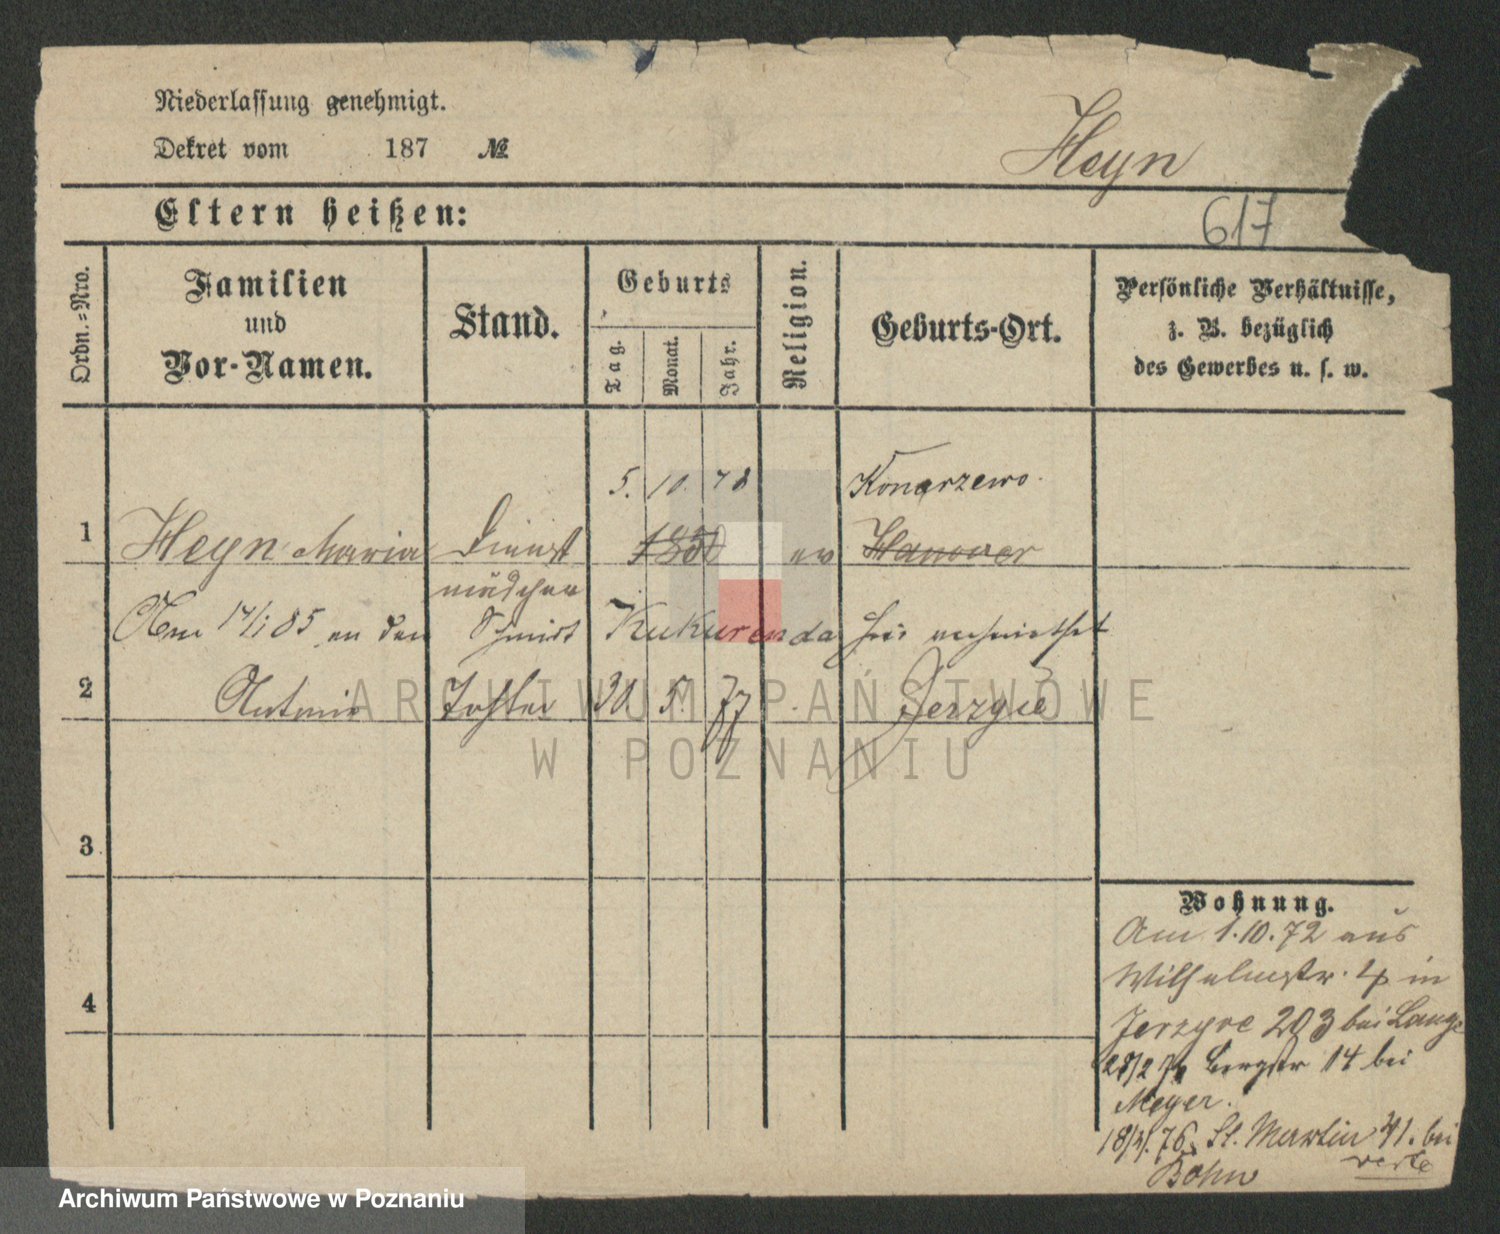 Niederlassung genehmigt.
Dekret vom 187 №
Heyn
Eltern heißen:
617
Ordn.-Nro.
Familien
und
Vor-Namen.
Stand.
Geburts
Tag.
Monat.
Jahr.
Religion.
Geburts-Ort.
Persönliche Verhältnisse,
z. B. bezüglich
des Gewerbes u. s. w.
5. 10. Konarzewo.
1 Heyn Maria Dienst 1850 ev Hanover
mädchen
85 an den Schmidt Kukurenda hier verheirathet
2 Antonie Tochter 30 5. 77 Jerzyce
3
4
Wohnung.
Am 1.10.72 aus
Wilhelmstr. 4 in
Jerzyce 203 bei Lange
Bergstr 14 bei
Meyer.
76. St. Martin 41. bei
Böhn verte
ARCHIWUM PAŃSTWOWE
W POZNANIU
Archiwum Państwowe w Poznaniu